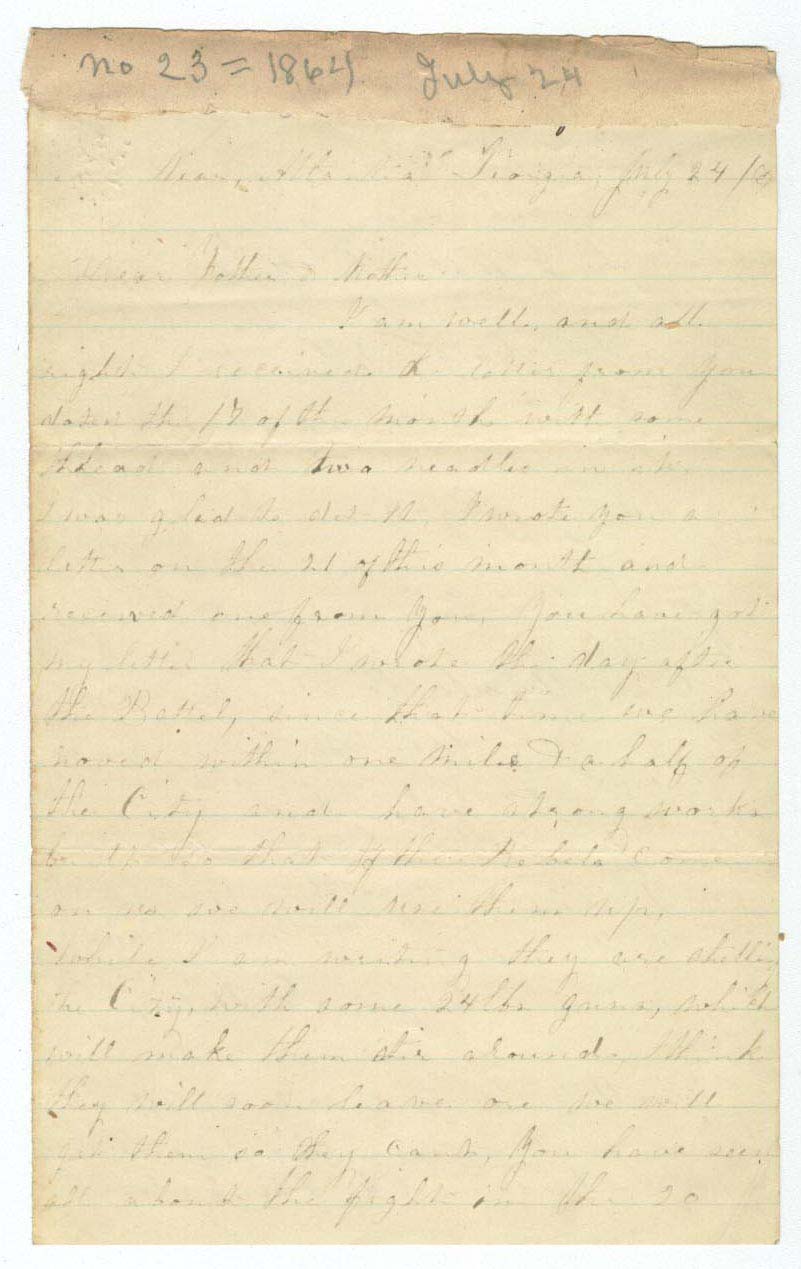 no 23 = 1864 July 24
Near, Atlanta Georgia, July 24 /6
Dear Father & Mother
I am well, and all
right I received a letter from you
dated the 17 of the month with some
thread and two needles in it.
I was glad to get it, I wrote you a
letter on the 21 of this month and
received one from you, you have got
my letter that I wrote the day after
the Battel, since that time we have
moved within one mile & a half of
the City and have strong works
built so that if the Rebels come
on us we will use them up,
While I am writing they are shelling
the City, with some 24 lbs guns, which
will make them stir around, I think
they will soon leave or we will
get them so they cant, You have seen
all about the fight on the 20